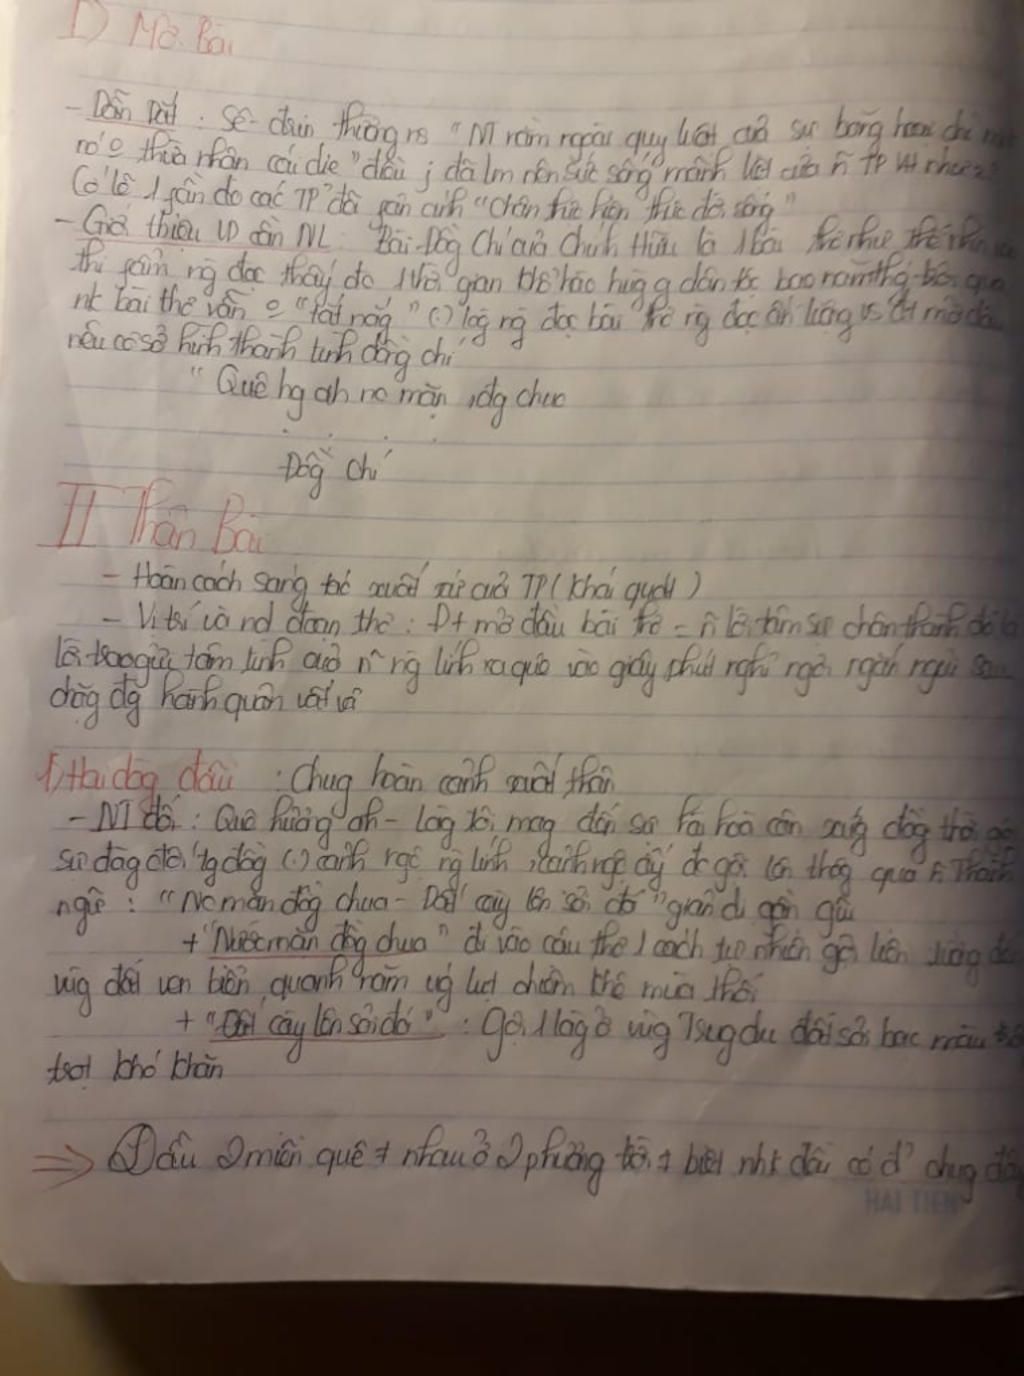 I) Mở Bài
- Dẫn Dắt : Sê-đrin thường ns "NT nằm ngoài quy luật của sự băng hoại chỉ
nó o thừa nhận cái die" điều j đã lm nên sức sống mãnh liệt của
Có lẽ 1 phần do các TP đã phản ánh "chân thực hiện thực đời sống"
- Giới thiệu VD cần NL : Bài Đồng Chí của Chính Hữu là 1 bài thơ như thế
thi phẩm ng đọc thấy đc 1 thời gian
nh bài thơ vẫn o "tắt nắng" (.) lòg ng đọc bài thơ ng đọc ấn tượng vs
nêu cơ sở hình thành tình đồng chí
"Quê hg ah nc mặn ,đg chua
. . . .
Đồg chí
II Thân Bài
- Hoàn cảch sáng tác xuất xứ của TP (khái quát)
- Vị trí và nd đoạn thơ : Đt mở đầu bài thơ = lời tâm sự chân thành đó là
lời tâm tình của ng lính vào giây phút nghỉ ngơi ngắn ngủi sau
chặg đg hành quân vất vả
1, Hai dòg đầu : Chug hoàn cảnh xuất thân
- NT đối : Quê hương ah - làg tôi mag đến sự hài hoà cân xứng đồg thời
sự đồg (.) cảnh ngộ ng lính ,cảnh ngộ ấy đc gợi lên thôg qua Thành
ngữ : "Nc mặn đồg chua - Đất cày lên sỏi đá" giản dị gần gũi
+ "Nước mặn đồg chua" đi vào câu thơ 1 cách tự nhiên gợi liên tưởng
vùg đất ven biển quanh năm chiêm khê mùa thối
+ "Đất cày lên sỏi đá" : Gợi 1 làg ở vùg Trug du đồi sỏi bạc màu
trọt khó khăn
⇒ Dẫu 2 miền quê ≠ nhau ở 2 phươg trời ≠ biệt nhг đều có đ' chug
HẢI TIẾN